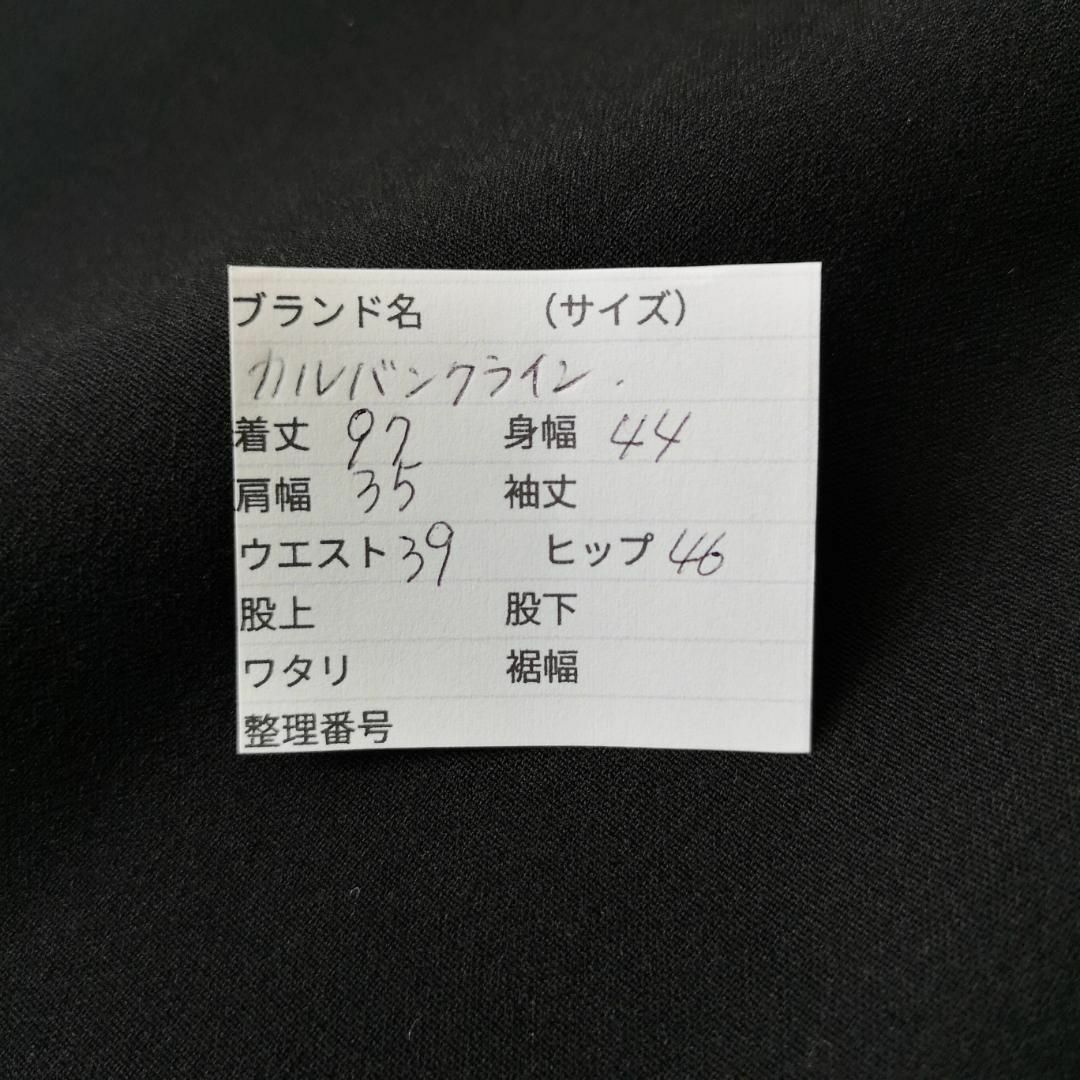 ブランド名 (サイズ)
カルバンクライン.
着丈 97 身幅 44
肩幅 35 袖丈
ウエスト 39 ヒップ 46
股上 股下
ワタリ 裾幅
整理番号